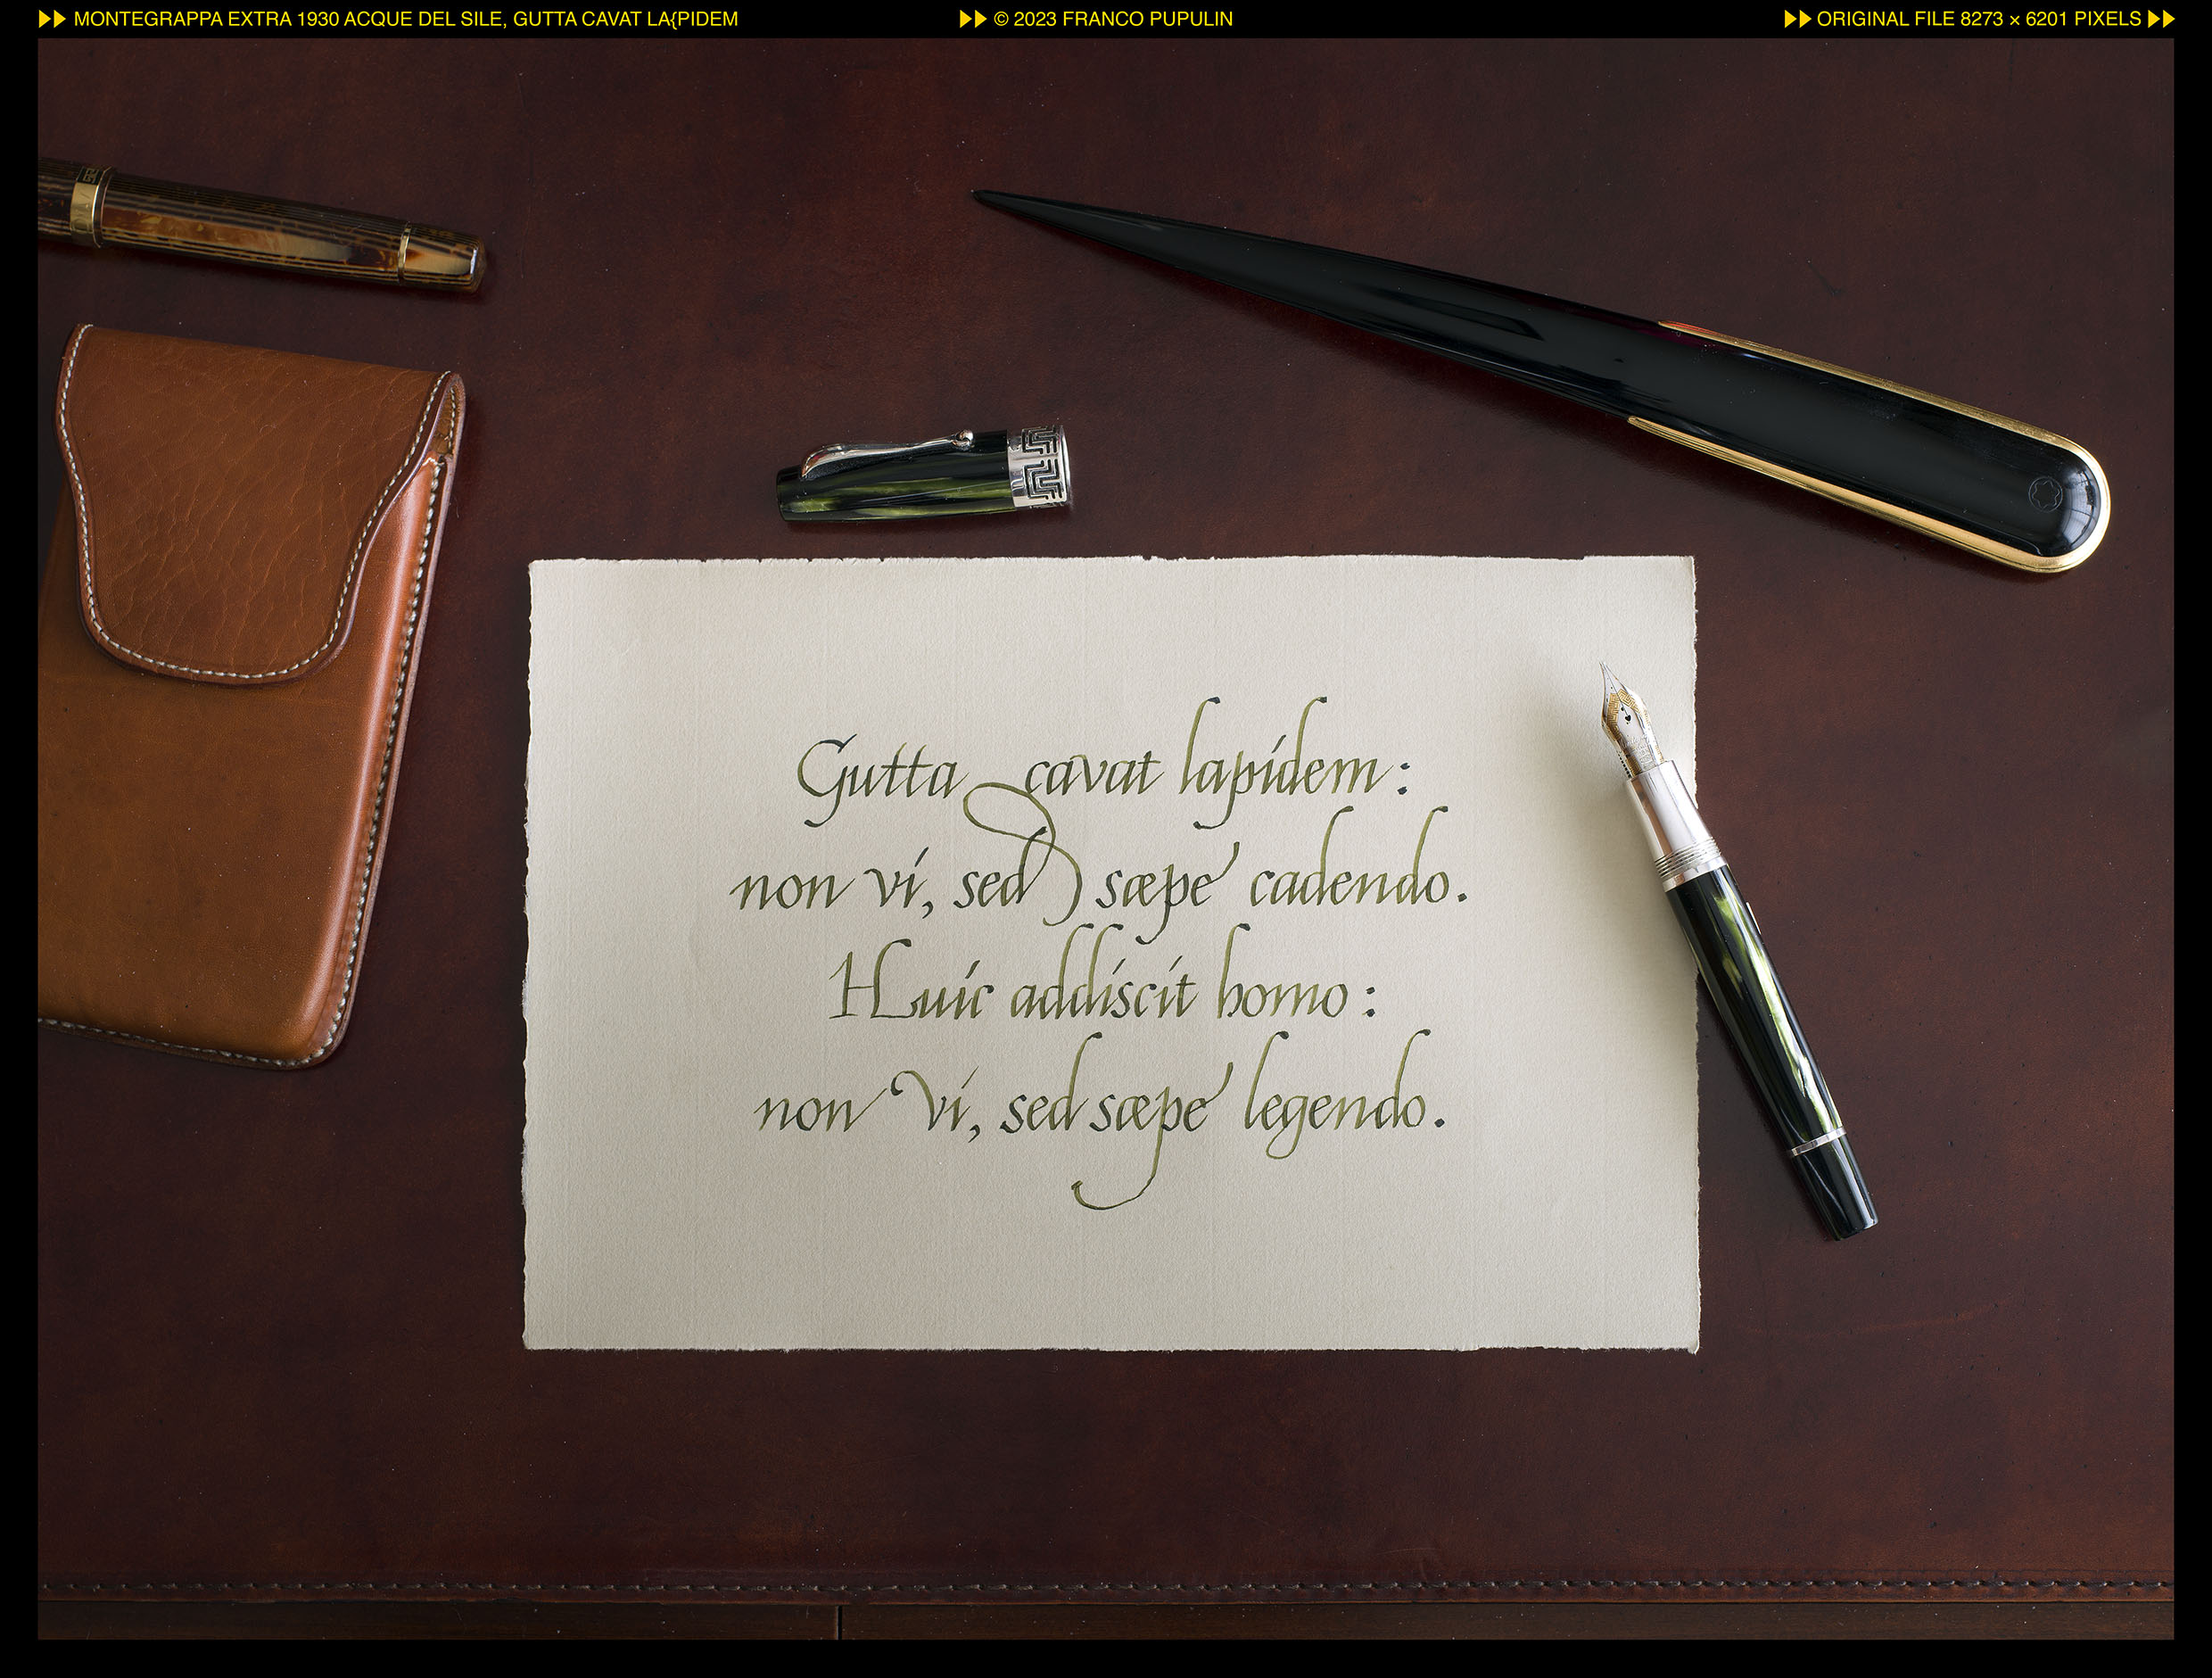 MONTEGRAPPA EXTRA 1930 ACQUE DEL SILE, GUTTA CAVAT LA{PIDEM
© 2023 FRANCO PUPULIN
ORIGINAL FILE 8273 × 6201 PIXELS
Gutta cavat lapidem:
non vi, sed sæpe cadendo.
Huic addiscit homo:
non vi, sed sæpe legendo.